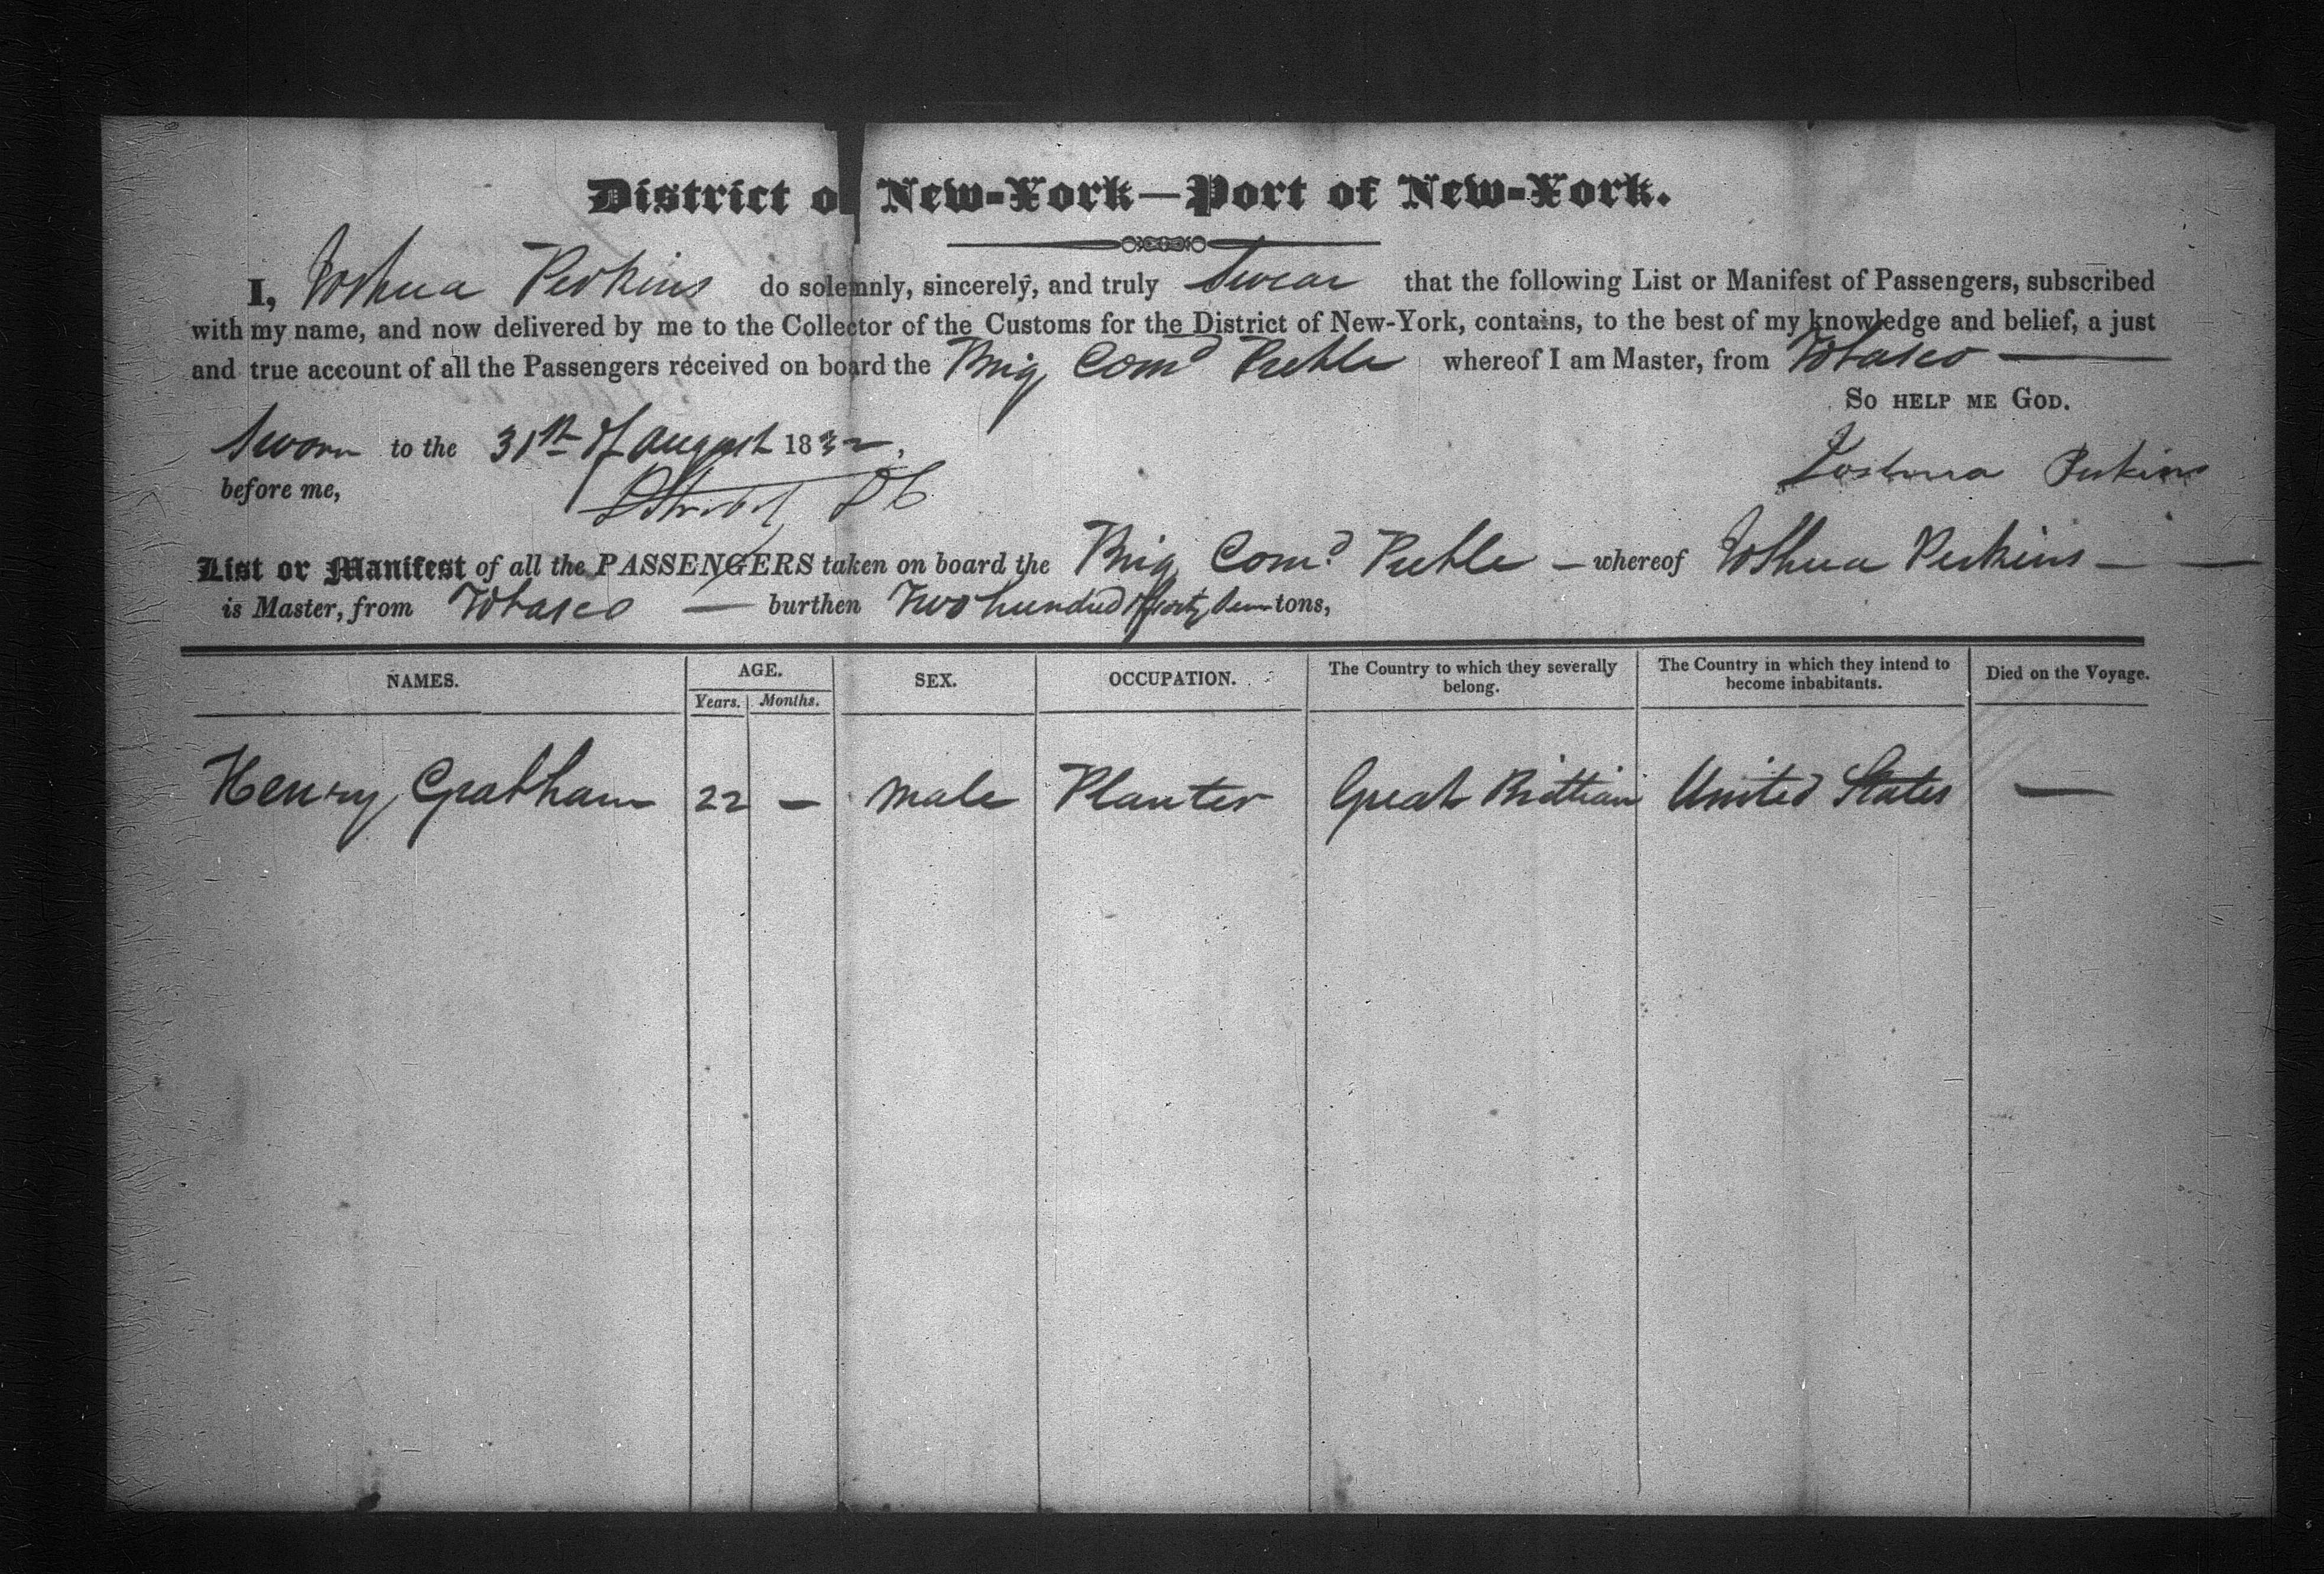 District of New-York—Port of New-York.
I, Joshua Perkins do solemnly, sincerely, and truly Swear that the following List or Manifest of Passengers, subscribed
with my name, and now delivered by me to the Collector of the Customs for the District of New-York, contains, to the best of my knowledge and belief, a just
and true account of all the Passengers received on board the Brig Comd Preble whereof I am Master, from Tobasco —
So help me God.
Sworn to the 31st of August 1832,
Joshua Perkins
before me,
List or Manifest of all the PASSENGERS taken on board the Brig Comd Preble — whereof Joshua Perkins — —
is Master, from Tobasco — burthen Two hundred tons,
NAMES. AGE. SEX. OCCUPATION. The Country to which they severally belong. The Country in which they intend to become inhabitants. Died on the Voyage.
Years. Months.
Henry Grabham 22 — Male Planter Great Brittian United States —